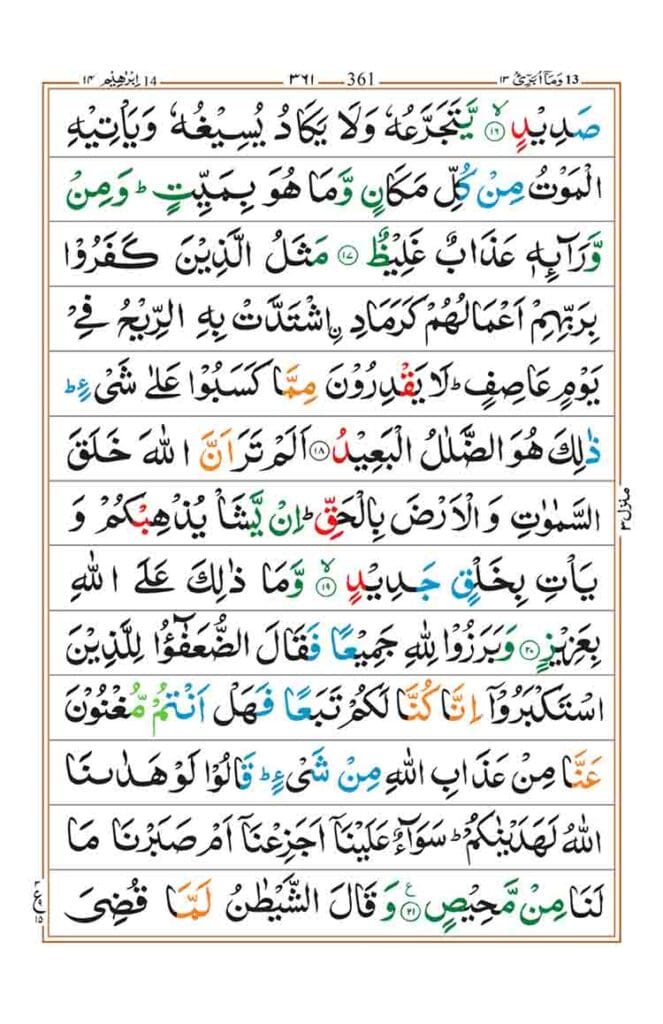 ابرٰهيم ١٤ 14 ٣٦١ 361 وَمَآ اُبَرِّئُ ١٣ 13
صَدِيْدٍ ۙ‏﴿۱۶﴾ يَّتَجَرَّعُهٗ وَلَا يَكَادُ يُسِيْغُهٗ وَيَاْتِيْهِ
الْمَوْتُ مِنْ كُلِّ مَكَانٍ وَّمَا هُوَ بِمَيِّتٍ ؕ وَمِنْ
وَّرَآئِهٖ عَذَابٌ غَلِيْظٌ ﴿۱۷﴾ مَثَلُ الَّذِيْنَ كَفَرُوْا
بِرَبِّهِمْ اَعْمَالُهُمْ كَرَمَادِ ۨاشْتَدَّتْ بِهِ الرِّيْحُ فِيْ
يَوْمٍ عَاصِفٍ ؕ لَا يَقْدِرُوْنَ مِمَّا كَسَبُوْا عَلٰى شَيْءٍ ؕ
ذٰلِكَ هُوَ الضَّلٰلُ الْبَعِيْدُ ﴿۱۸﴾ اَلَمْ تَرَ اَنَّ اللّٰهَ خَلَقَ
السَّمٰوٰتِ وَالْاَرْضَ بِالْحَقِّ ؕ اِنْ يَّشَاْ يُذْهِبْكُمْ وَ
يَاْتِ بِخَلْقٍ جَدِيْدٍ ۙ‏﴿۱۹﴾ وَّمَا ذٰلِكَ عَلَى اللّٰهِ
بِعَزِيْزٍ ﴿۲۰﴾ وَبَرَزُوْا لِلّٰهِ جَمِيْعًا فَقَالَ الضُّعَفٰٓؤُا لِلَّذِيْنَ
اسْتَكْبَرُوْٓا اِنَّا كُنَّا لَكُمْ تَبَعًا فَهَلْ اَنْتُمْ مُّغْنُوْنَ
عَنَّا مِنْ عَذَابِ اللّٰهِ مِنْ شَيْءٍ ؕ قَالُوْا لَوْ هَدٰىنَا
اللّٰهُ لَهَدَيْنٰكُمْ ؕ سَوَآءٌ عَلَيْنَآ اَجَزِعْنَآ اَمْ صَبَرْنَا مَا
لَنَا مِنْ مَّحِيْصٍ ﴿۲۱﴾ ع وَقَالَ الشَّيْطٰنُ لَمَّا قُضِيَ
منزل ٣